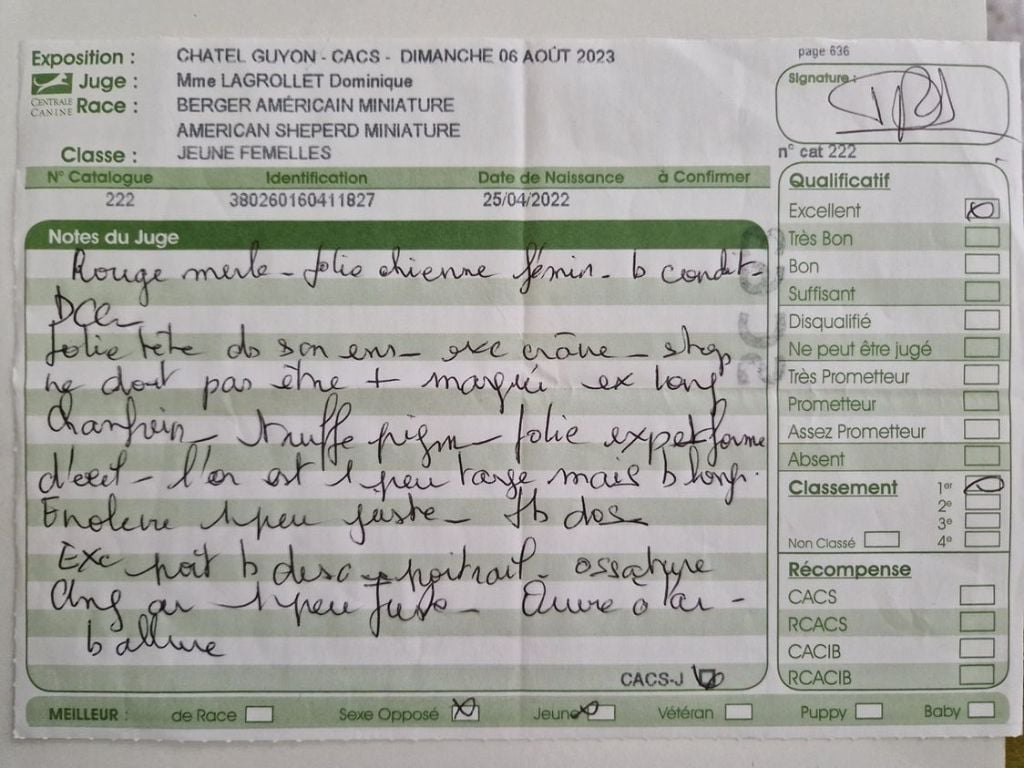 Exposition : CHATEL GUYON - CACS - DIMANCHE 06 AOÛT 2023
page 636
Juge : Mme LAGROLLET Dominique
Signature :
CENTRALE CANINE
Race : BERGER AMÉRICAIN MINIATURE
AMERICAN SHEPERD MINIATURE
Classe : JEUNE FEMELLES
n° cat 222
N° Catalogue Identification Date de Naissance à Confirmer
222 380260160411827 25/04/2022
Notes du Juge
Rouge merle - jolie chienne fémin - b condit -
Jolie tête ds son ens - exc crâne - stop
ne doit pas être + marqué ex long
Chanfrein - truffe pigm - jolie exp et forme
d'oeil - l'or est 1 peu large mais b long.
Encolure 1 peu juste - tb dos
Exc port b desc - poitrail - ossature
Ang av 1 peu juste - Ouvre o ar -
b allure
CACS-J
Qualificatif
Excellent
Très Bon
Bon
Suffisant
Disqualifié
Ne peut être jugé
Très Prometteur
Prometteur
Assez Prometteur
Absent
Classement 1er
2e
3e
Non Classé 4e
Récompense
CACS
RCACS
CACIB
RCACIB
MEILLEUR : de Race Sexe Opposé Jeune Vétéran Puppy Baby